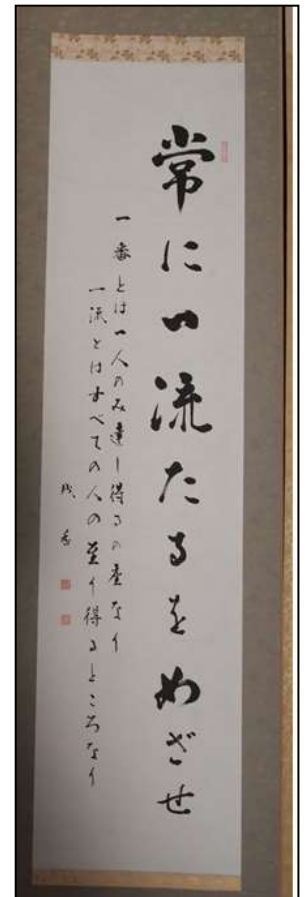 常に一流たるをめざせ
一番とは一人のみ達し得るの座なり
一流とはすべての人の至り得るところなり